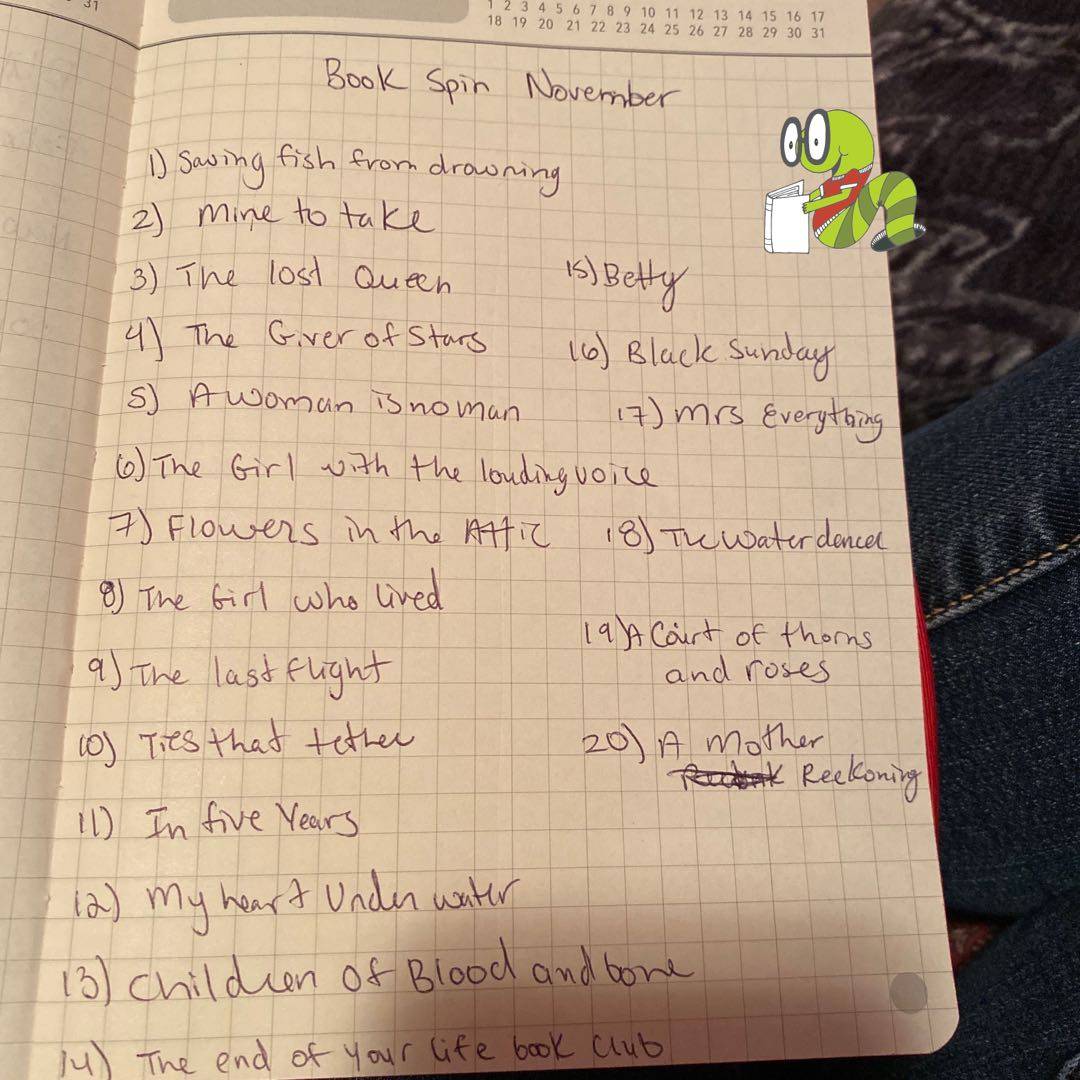 31
1 2 3 4 5 6 7 8 9 10 11 12 13 14 15 16 17
18 19 20 21 22 23 24 25 26 27 28 29 30 31
Book Spin November
1) Saving fish from drowning
2) Mine to take
3) The lost Queen
4) The Giver of Stars
5) A woman is no man
6) The Girl with the louding voice
7) Flowers in the Attic
8) The Girl who lived
9) The last flight
10) Ties that tether
11) In five Years
12) My heart Under water
13) Children of Blood and bone
14) The end of your life book club
15) Betty
16) Black Sunday
17) Mrs Everything
18) The water dencer
19) A Court of thorns
and roses
20) A Mother
Reckoning